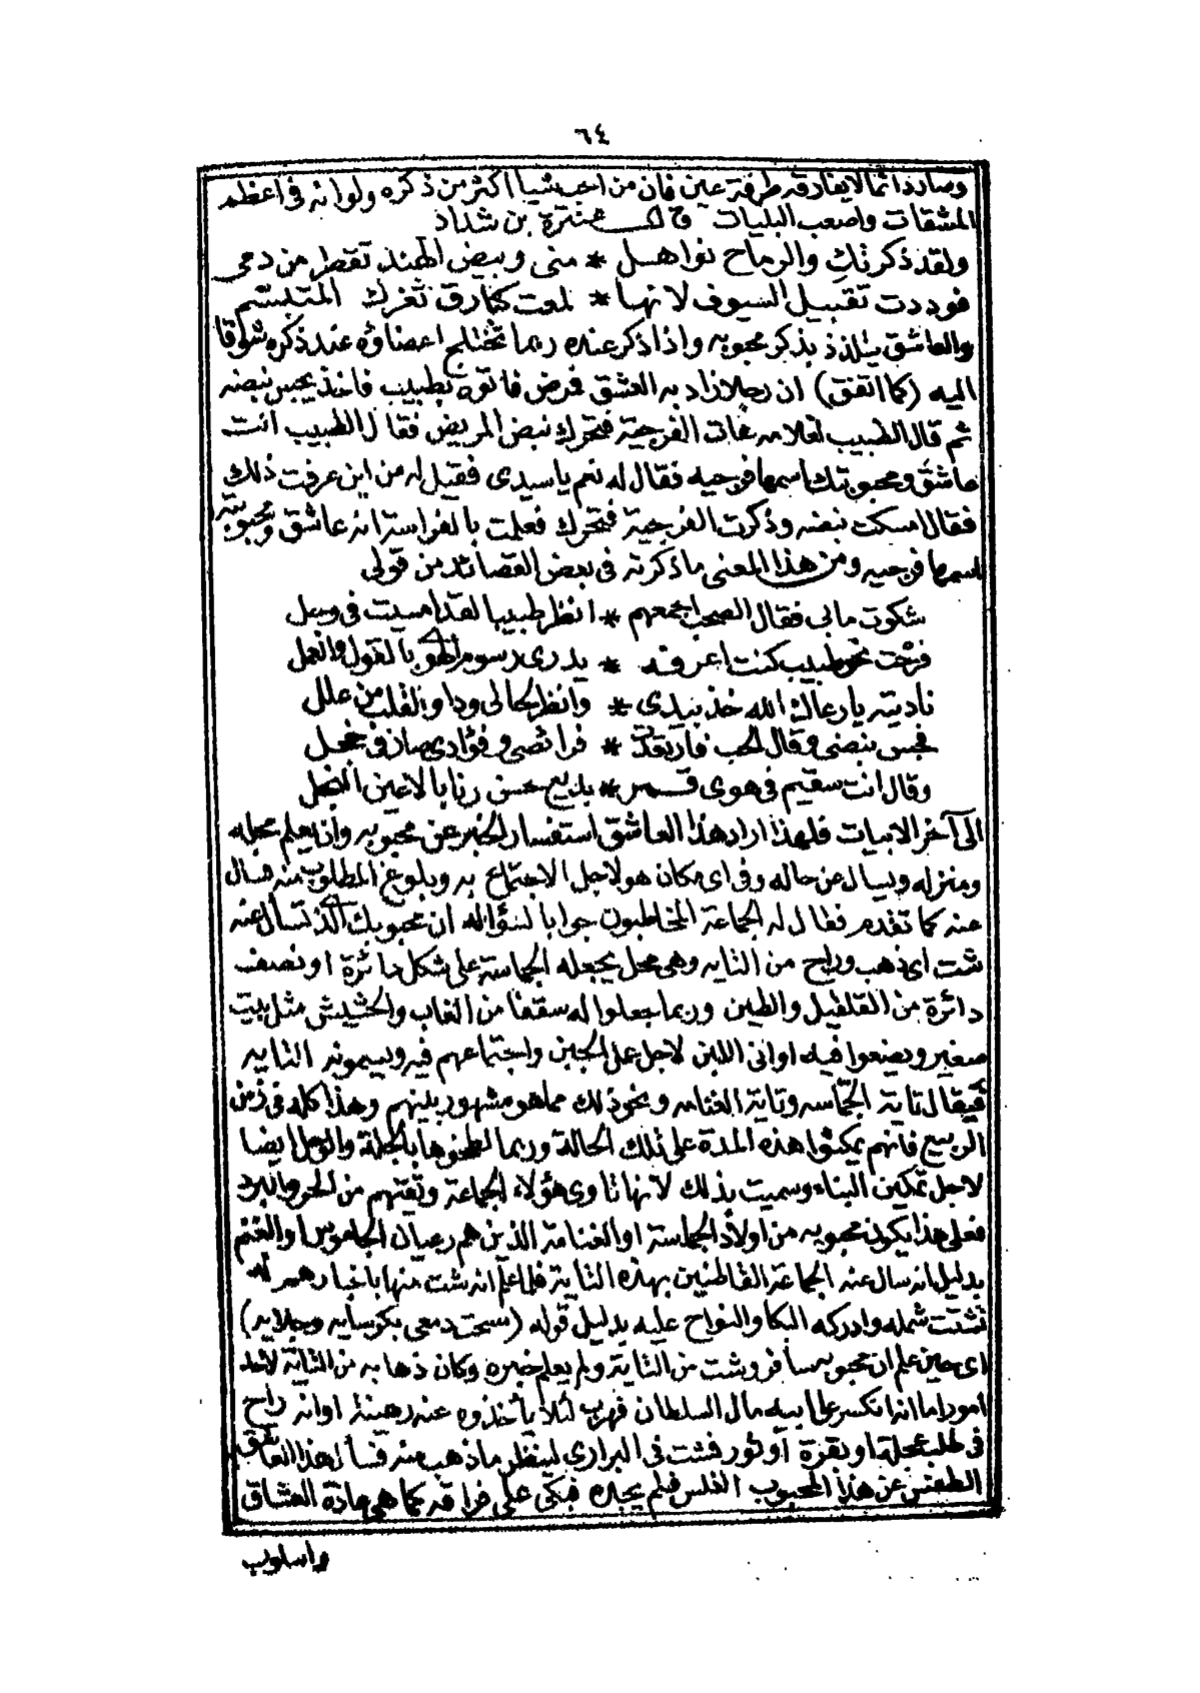 ٦٤
وصار دائما لا يفارقه طرفة عين فان من احب شيا اكثر من ذكره ولو انه فى اعظم
المشقات واصعب البليات قال عنترة بن شداد
ولقد ذكرتك والرماح نواهل * منى وبيض الهند تقطر من دمى
فوددت تقبيل السيوف لانها * لمعت كبارق ثغرك المتبسم
والعاشق يتلذذ بذكر محبوبه واذا ذكر عنده ربما تختلج اعضاؤه عند ذكره شوقا
اليه (كما اتفق) ان رجلا زاد به العشق فمرض فاتوه بطبيب فاخذ يجس نبضه
ثم قال الطبيب لغلامه هات الفرجية فتحرك نبض المريض فقال الطبيب انت
عاشق ومحبوبتك اسمها فرجيه فقال له نعم ياسيدى فقيل له من اين عرفت ذلك
فقال امسكت نبضه وذكرت الفرجية فتحرك فعلمت بالفراسة انه عاشق ومحبوبته
اسمها فرجيه ومن هذا المعنى ما ذكرته فى بعض القصائد من قولى
شكوت ما بى فقال الصحب اجمعهم * انظر طبيبا لقد امسيت فى وجل
فرحت نحو طبيب كنت اعرفه * يدرى رسوم الهوى بالقول والعمل
ناديته يا رعاك الله خذ بيدى * وانظر لحالى وداو القلب من علل
فجس نبضى وقال الحب فارتعدت * فرائصى وفؤادى صار فى خجل
وقال انت سقيم فى هوى قمر * بديع حسن رنا بالاعين النجل
الى آخر الابيات فلهذا اراد هذا العاشق استفسار الخبر عن محبوبه وان يعلم محله
ومنزله ويسال عن حاله وفى اى مكان هو لاجل الاجتماع به وبلوغ المطلوب منه فسال
عنه كما تقدم فقال له الجماعة المخاطبون جوابا لسؤاله ان محبوبك الذى تسأل عنه
شت اى ذهب وراح من التايه وهى محل يجعله الجماسة على شكل دائرة او نصف
دائرة من القلفيل والطين وربما جعلوا له سقفا من الغاب والحشيش مثل بيت
صغير ويضعوا فيه اوانى اللبن لاجل عمل الجبن واجتماعهم فيه ويسمونه التايه
فيقال تاية الجماسه وتاية الغنامه ونحو ذلك مما هو مشهور بينهم وهذا كله فى زمن
الربيع فانهم يمكثوا هذه المدة على تلك الحالة وربما لطخوها بالجلة والوحل ايضا
لاجل تمكين البناء وسميت بذلك لانها تاوى هؤلاء الجماعة وتقيهم من الحر والبرد
فعلى هذا يكون محبوبه من اولاد الجماسة او الغنامة الذين هم رعيان الجاموس او الغنم
بدليل انه سال عنه الجماعة القاطنين بهذه التاية فلما علم انه شت منها باخبارهم له
تشتت شمله وادركه البكا والنواح عليه بدليل قوله (سحت دمعى بكرسايه وجلايه)
اى حين علم ان محبوبه سافر وشت من التاية ولم يعلم خبره وكان ذهابه من التاية لاحد
امور اما انه انكسر على ابيه مال السلطان فهرب لئلا ياخذوه عنه رهينة او انه راح
فى طلب عجلة او بقرة او ثور فشت فى البرارى لينظر ما ذهب منه فسأل هذا العاشق
الطفس عن هذا المحبوب الفلس فلم يجده فبكى على فراقه كما هى عادة العشاق
واسلوب